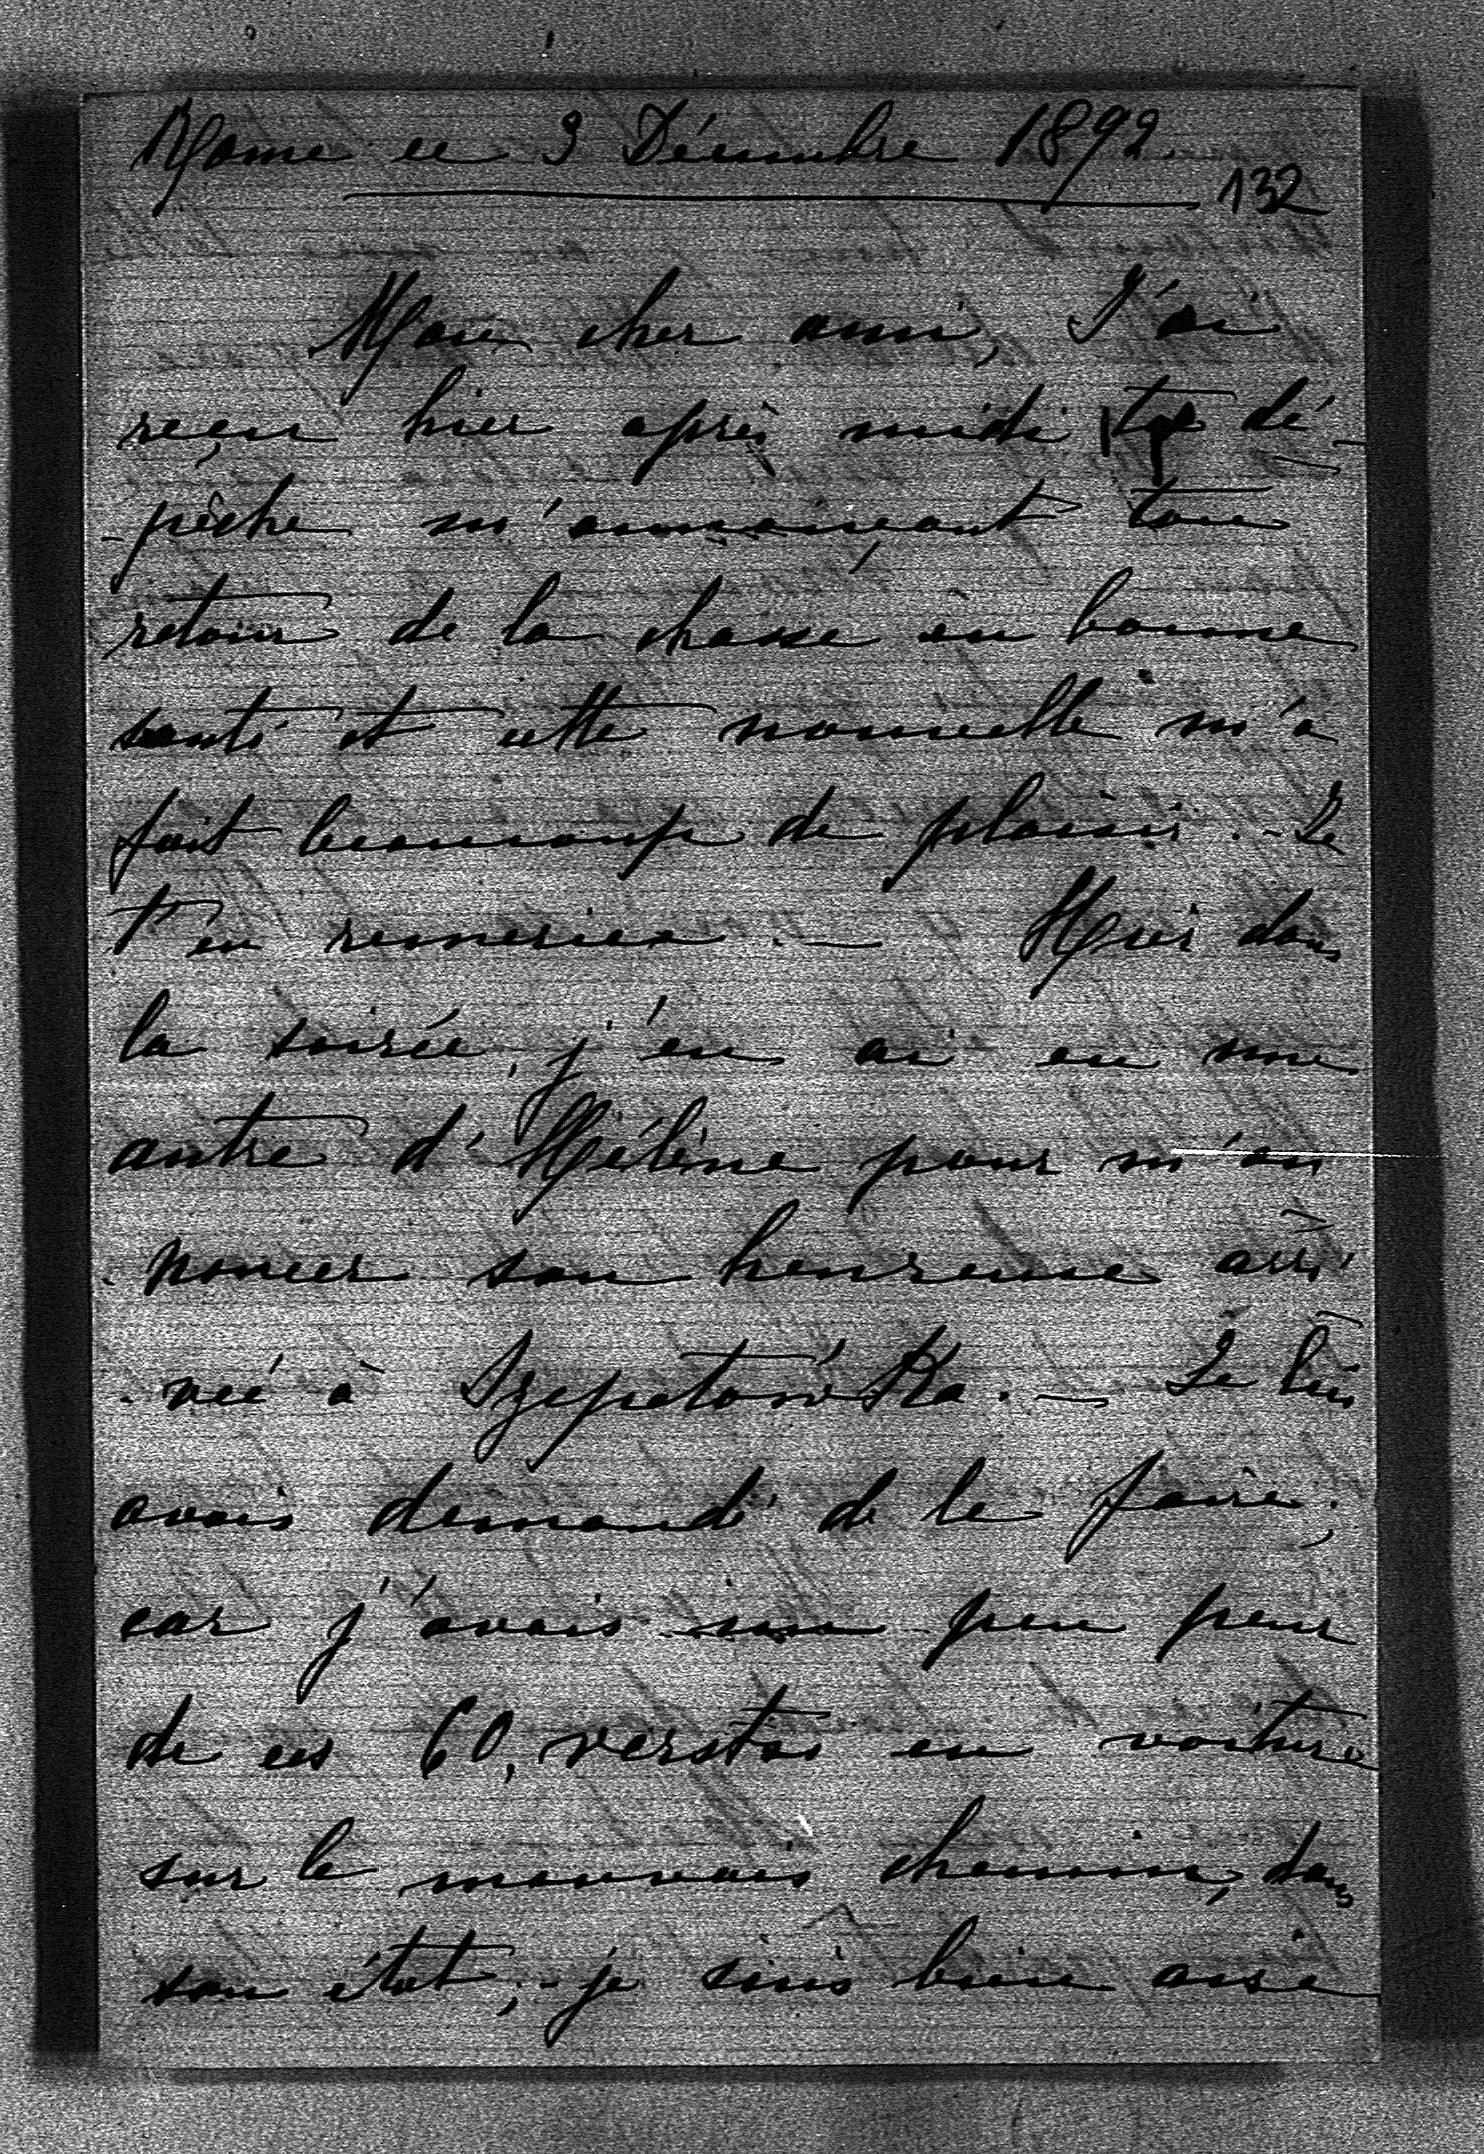 Rome ce 3 Décembre 1892.
132
Mon cher ami, J'ai
reçu hier après midi ta dé-
-pêche m'annonçant ton
retour de la chasse en bonne
santé et cette nouvelle m'a
fait beaucoup de plaisir. - Je
t'en remercie. — Hier dans
la soirée, j'en ai eu une
autre d'Hélène pour m'an
-noncer son heureuse arri
-vée à Szepetówka. — Je lui
avais demandé de le faire,
car j'avais un peu peur
de ces 60, verstes en voiture
sur le mauvais chemin, dans
son état; - je suis bien aise